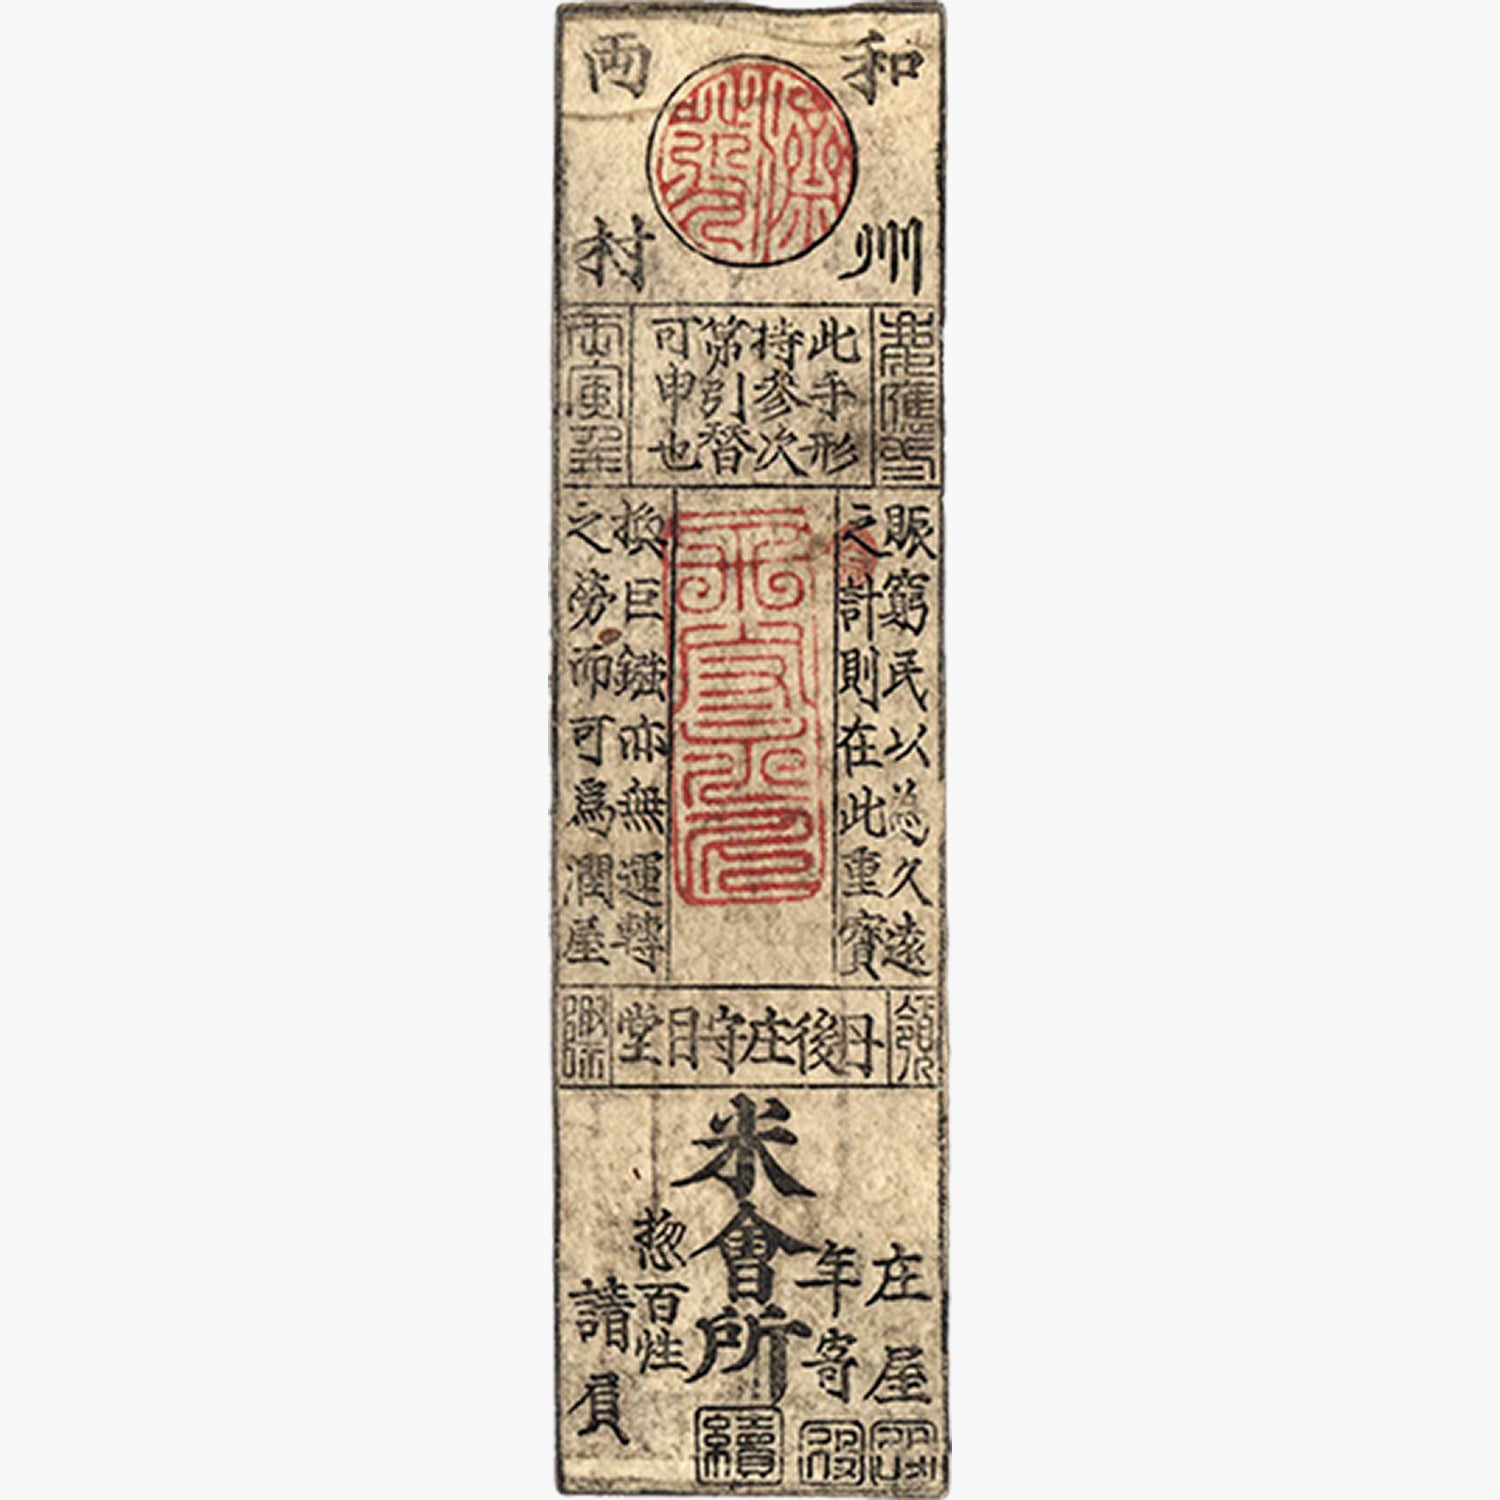 和州
両村
此手形
持参次
第引替
可申也
賑窮民以為久遠
之計則在此重寶
換巨鏹亦無運轉
之労而可為潤屋
丹後庄守目堂
庄屋
年寄
米會所
惣百姓
請負